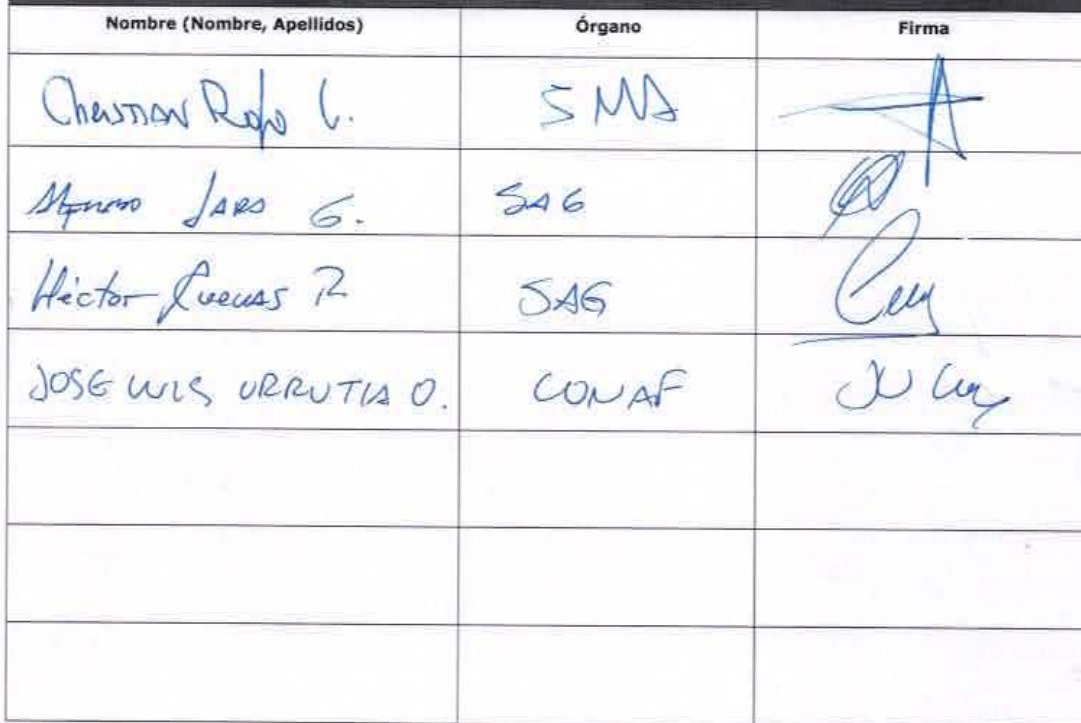 Nombre (Nombre, Apellidos) Órgano Firma
Christian Rojo L. SMA
Jara G. SAG
Héctor Cuevas R SAG
JOSE LUIS URRUTIA O. CONAF